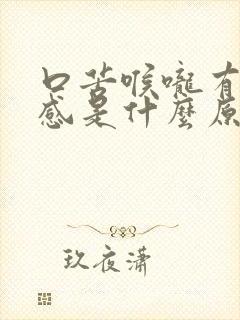 口苦喉嚨有
感是什麼原
玖夜瀟